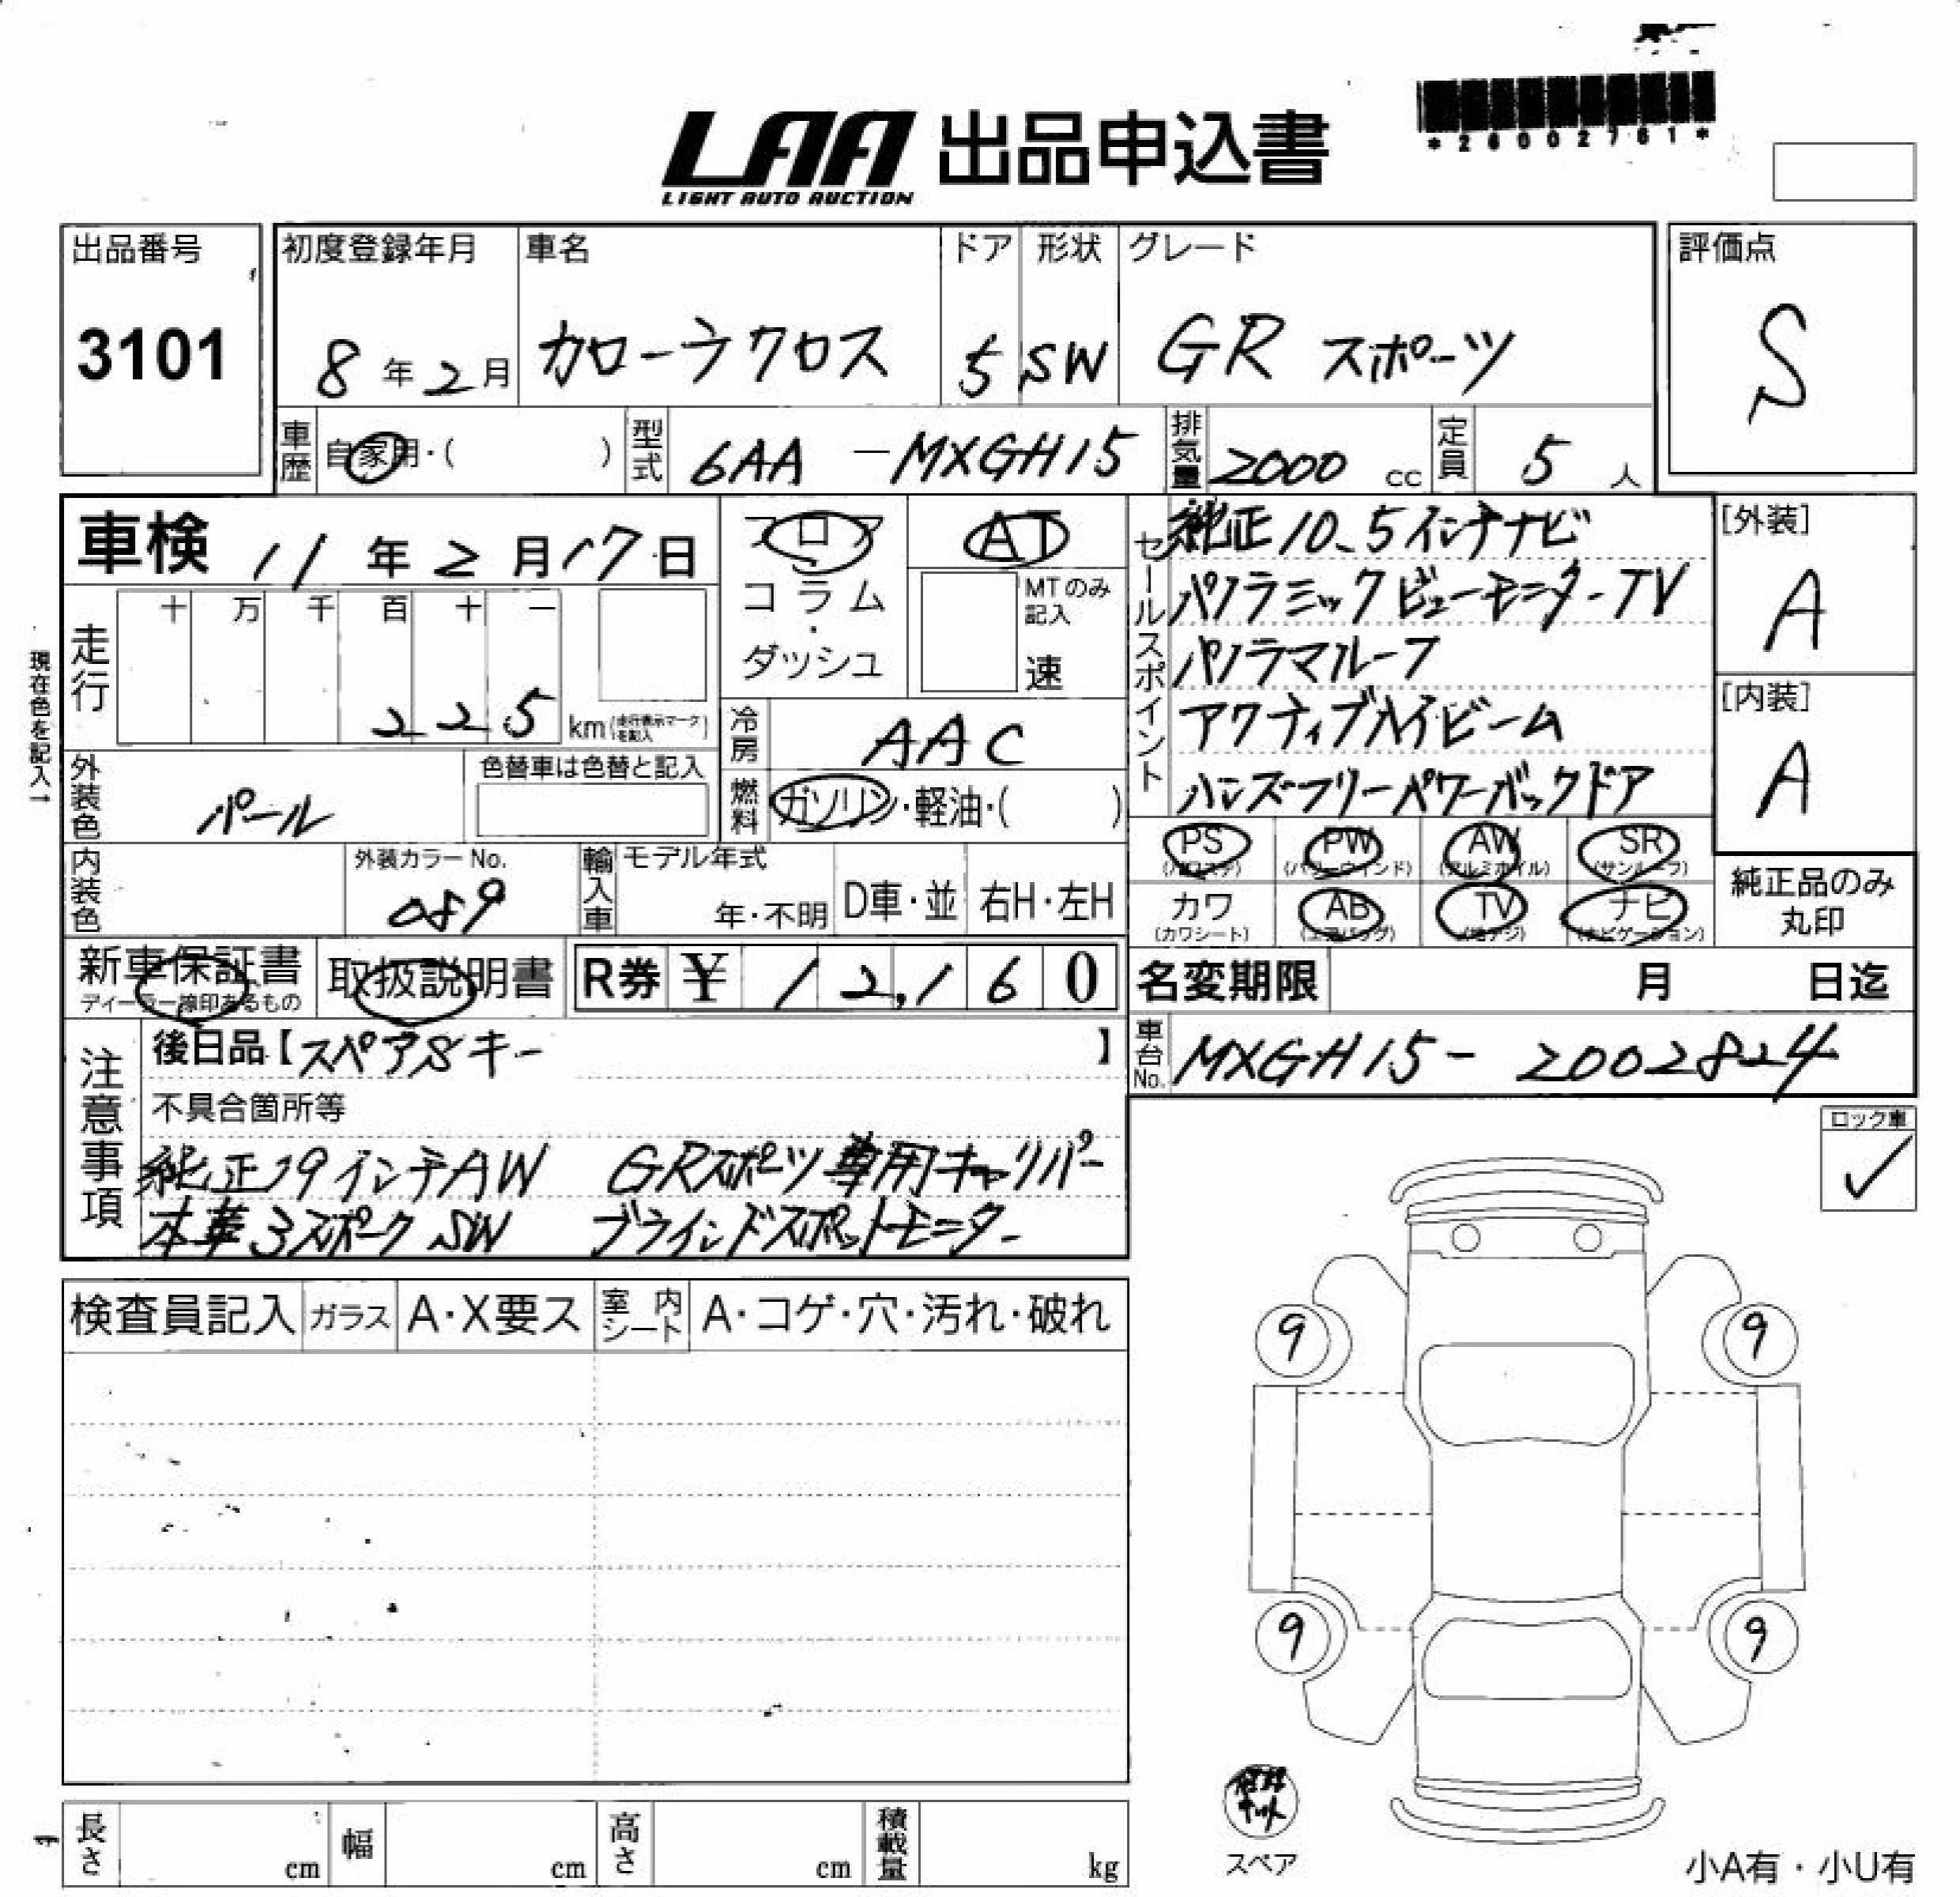 LAA 出品申込書
LIGHT AUTO AUCTION
*26002761*
出品番号
3101
初度登録年月
8年2月
車名
カローラクロス
ドア
5
形状
SW
グレード
GR スポーツ
評価点
S
車歴
自家用・( )
型式
6AA -MXGH15
排気量
2000 cc
定員
5 人
車検 11年2月17日
フロア
コラム
・
ダッシュ
AT
MTのみ記入
速
現在色を記入→
走行
十 万 千 百 十 一
225 km(走行表示マークを記入)
冷房
AAC
外装色
パール
色替車は色替と記入
燃料
ガソリン・軽油・( )
セールスポイント
純正10.5インチナビ
パノラミックビューモニターTV
パノラマルーフ
アクティブハイビーム
ハンズフリーパワーバックドア
[外装]
A
[内装]
A
内装色
外装カラーNo.
089
輸入車
モデル年式
年・不明
D車・並
右H・左H
PS (パワステ)
PW (パワーウインド)
AW (アルミホイル)
SR (サンルーフ)
カワ (カワシート)
AB (エアバッグ)
TV (地デジ)
ナビ (ナビゲーション)
純正品のみ
丸印
新車保証書
ディーラー捺印あるもの
取扱説明書
R券 ¥ 12,160
名変期限 月 日迄
車台No.
MXGH15- 2002824
注意事項
後日品【スペアSキー 】
不具合箇所等
純正19インチAW GRスポーツ専用キャリパー
本革3スポークSW ブラインドスポットモニター
ロック車
✓
検査員記入
ガラス
A・X要ス
室内シート
A・コゲ・穴・汚れ・破れ
9
9
9
9
スペア
長さ cm
幅 cm
高さ cm
積載量 kg
小A有・小U有